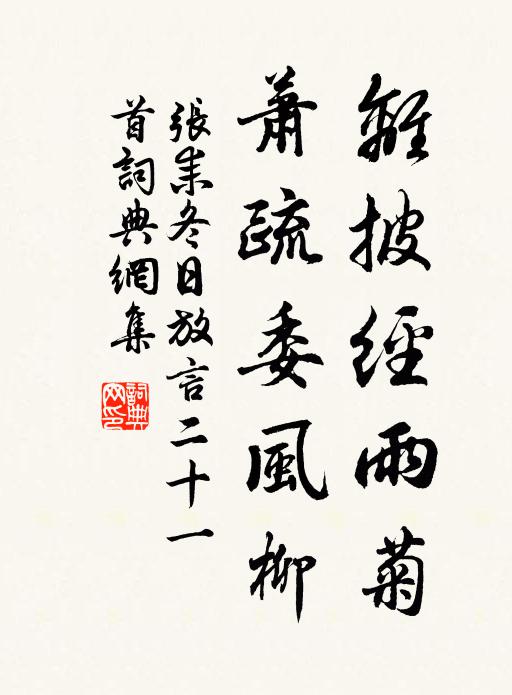 離披經雨菊
蕭疏委風柳
張耒冬日放言二十一
首詞典網集
詞典
网印